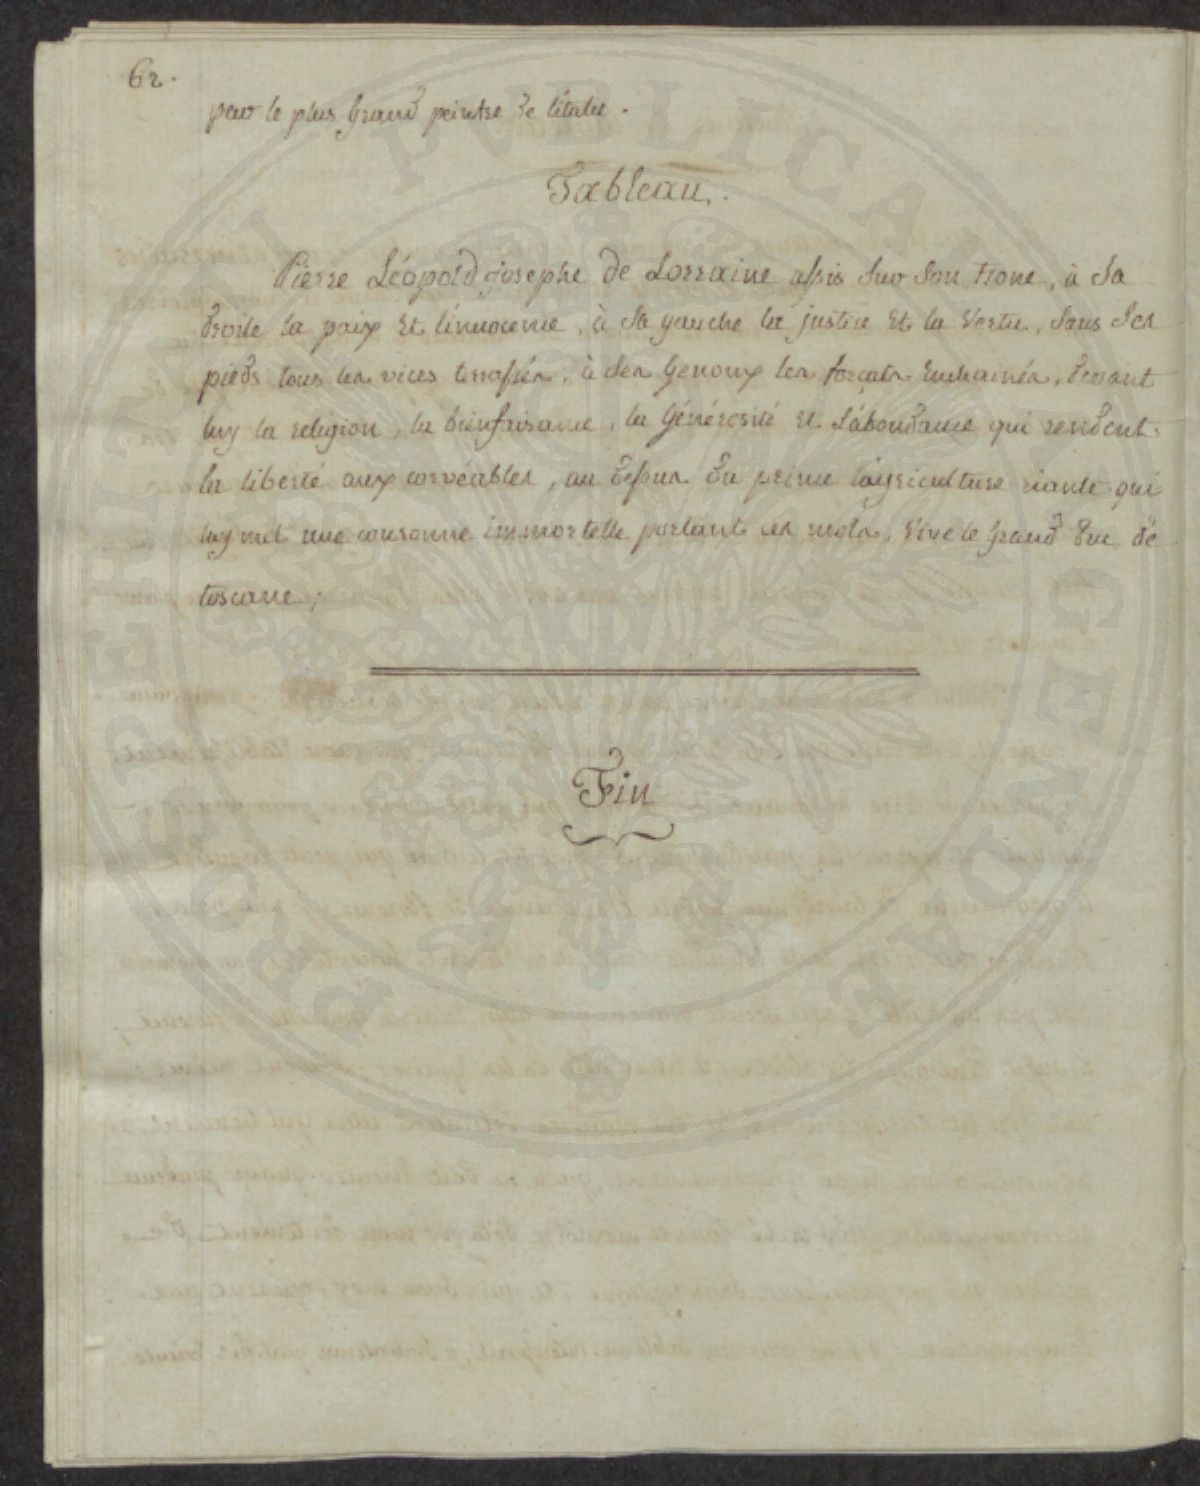 62.
par le plus grand peintre de litalie.
Tableau.
Pierre Léopold josephe de Lorraine assis sur son trone, à sa
droite la paix et linnocence, à sa gauche la justice et la vertu, sous ses
pieds tous les vices terrassés, à ses genoux les forçats enchainés, devant
luy la religion, la bienfaisance, la générosité et L'abondance qui rendent
la liberté aux corvéables, au dessus du prince l'agriculture riante qui
luy met une couronne immortelle portant ces mots, vive le grand Duc de
toscane,
Fin